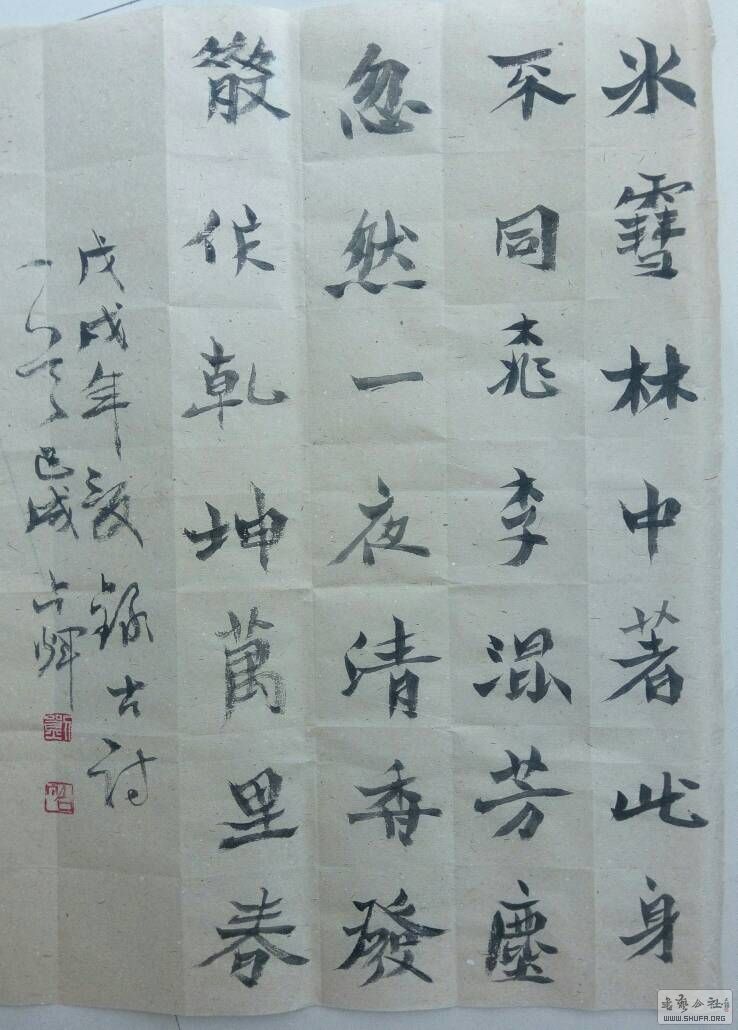 氷雪林中著此身
不同桃李混芳塵
忽然一夜清香發
散作乾坤萬里春
戊戌年 錄古詩
一
WWW.SHUFA.ORG